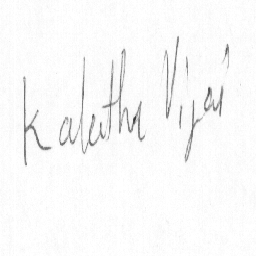 Kalutha Vijai